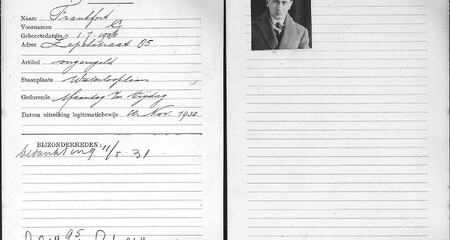 Naam Frankfort
Voornamen G
Geboortedatum 1.7.19
Adres Lepelstraat 85
Artikel ongeregeld
Staanplaats Waterlooplein
Gedurende Maandag t/m Vrijdag
Datum uitreiking legitimatiebewijs Nov. 1930
BIJZONDERHEDEN:
11/5.31